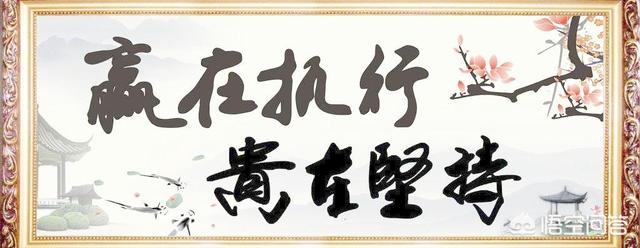 赢在执行
貴在堅持
悟空问答